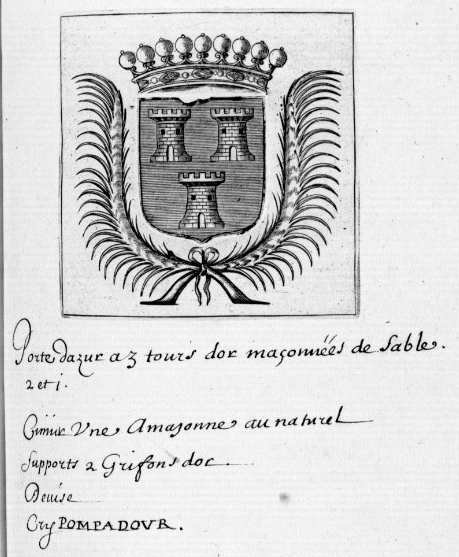 Porte dazur a 3 tours dor maçonnéés de sable.
2 et 1.
Cimier Vne Amazonne au naturel
Supports 2 Grifons dor.
Deuise
Cry POMPADOVR.